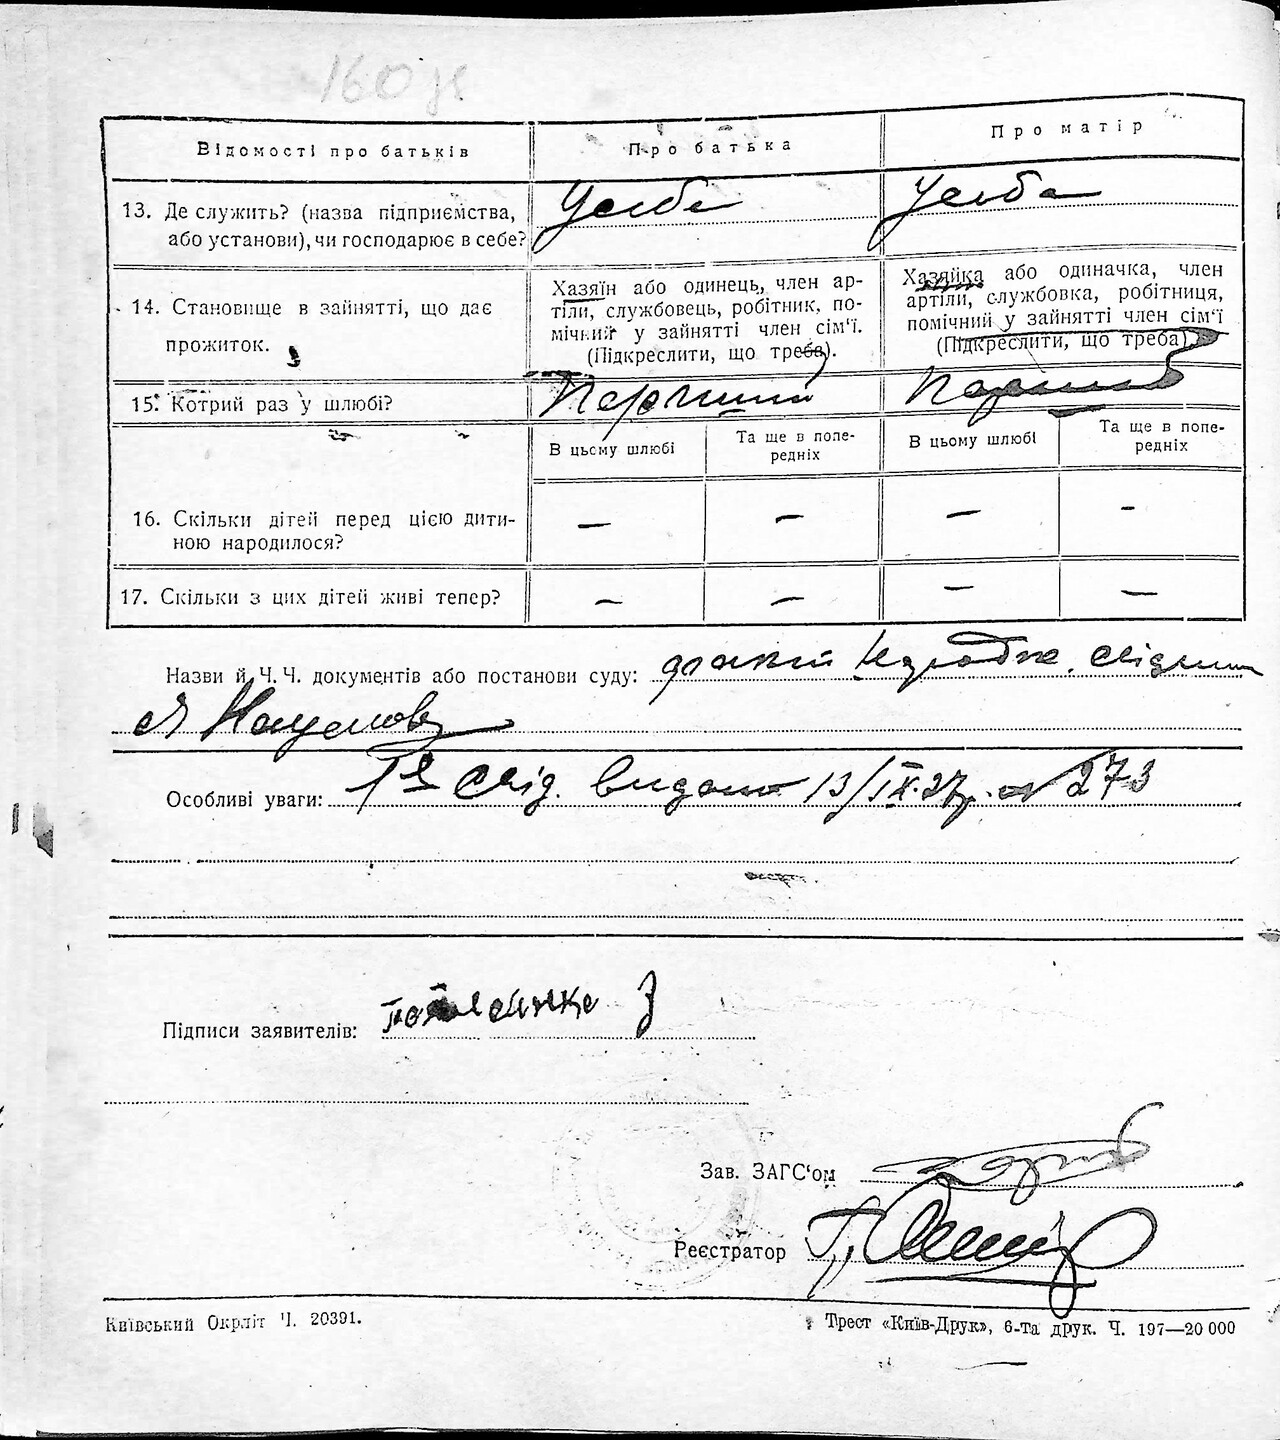 160
Відомості про батьків
Про батька
Про матір
13. Де служить? (назва підприємства,
або установи), чи господарює в себе?
У себе
У себе
14. Становище в зайнятті, що дає
прожиток.
Хазяїн або одинець, член ар-
тілі, службовець, робітник, по-
мічний у зайнятті член сім'ї.
(Підкреслити, що треба).
Хазяйка або одиначка, член
артілі, службовка, робітниця,
помічний у зайнятті член сім'ї
(Підкреслити, що треба)
15. Котрий раз у шлюбі?
Перший
Перший
В цьому шлюбі
Та ще в попе-
редніх
В цьому шлюбі
Та ще в попе-
редніх
16. Скільки дітей перед цією дити-
ною народилося?
— — — -
17. Скільки з цих дітей живі тепер?
— — — —
Назви й Ч. Ч. документів або постанови суду:
Особливі уваги: свід. видано 13/IX.27р. 273
Підписи заявителів:
Зав. ЗАГС'ом
Реєстратор
Київський Окрліт Ч. 20391.
Трест «Київ-Друк», 6-та друк. Ч. 197—20 000